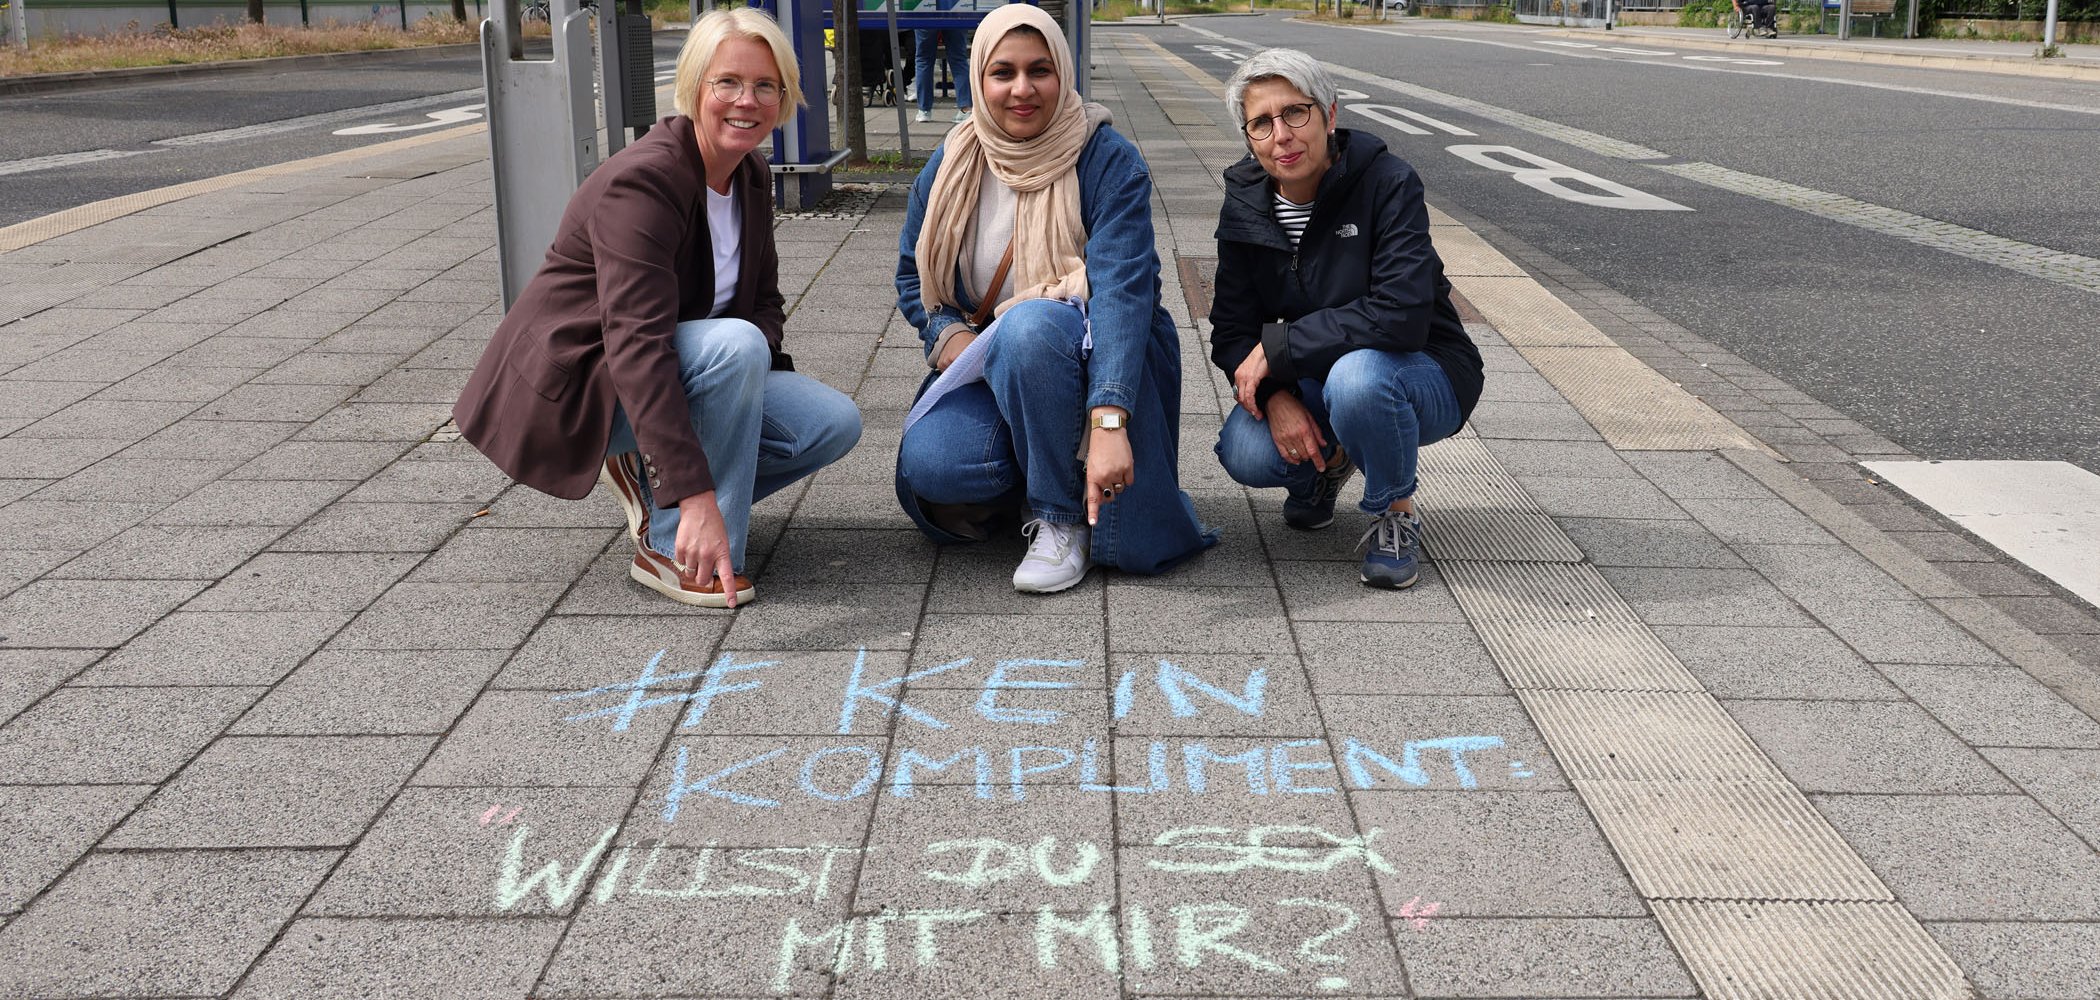 BUS
THE
NORTH
FACE
# KEIN
KOMPLIMENT:
"WILLST DU SEX
MIT MIR?"